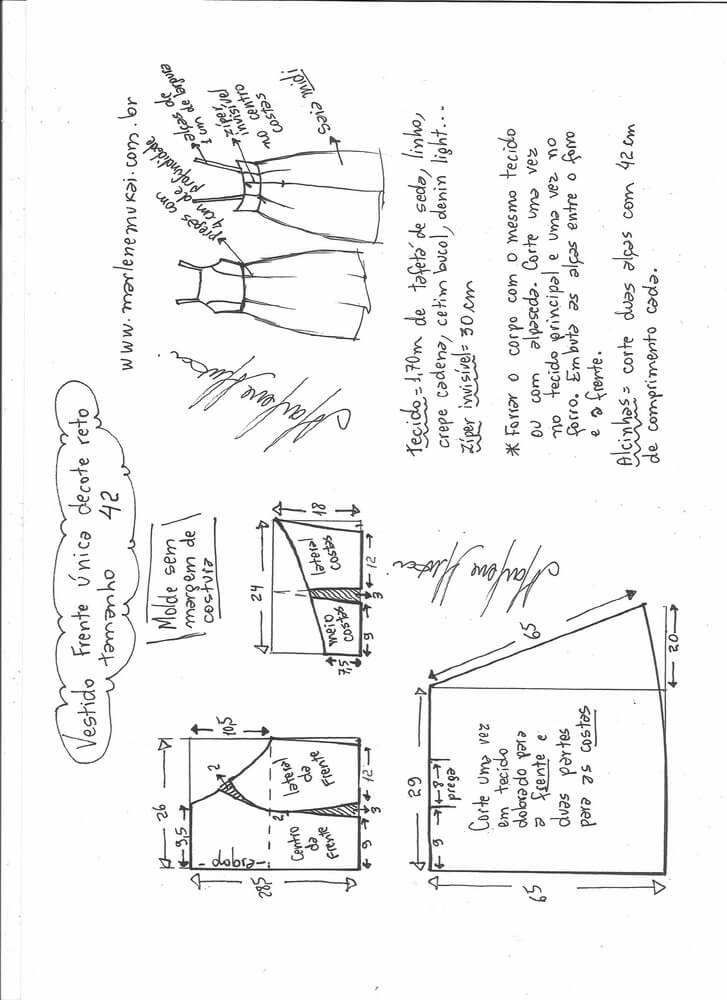 Vestido frente única decote reto
tamanho 42
www.marlenemukai.com.br
Molde sem
margem de
costura
pregas com
4 cm de
profundidade
alças de
1 cm de largura
zíper
invisível
no centro
costas
saia midi
Marlene Mukai
26
9,5
10,5
28,5
2
2
dobra
Centro
da
Frente
lateral
da
Frente
9
3
12
24
18
7,5
meio
costas
lateral
costas
9
3
12
Tecido = 1,70m de tafetá de seda, linho,
crepe cadena, cetim bucol, denin light...
Zíper invisível = 30 cm
* Forrar o corpo com o mesmo tecido
ou com alpaseda. Corte uma vez
no tecido principal e uma vez no
forro. Embuta as alças entre o forro
e a frente.
Alcinhas = corte duas alças com 42 cm
de comprimento cada.
29
65
9
8
prega
Corte uma vez
em tecido
dobrado para
a frente e
duas partes
para as costas
65
20
Marlene Mukai